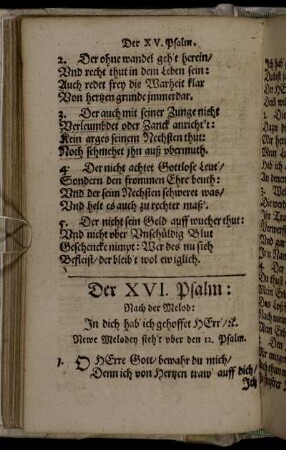 Der XV. Psalm.
2. Der ohne wandel geh't herein/
Vnd recht thut in dem Leben sein:
Auch redet frey die Warheit klar
Von hertzen grunde jmmerdar.
3. Der auch mit seiner Zunge nicht
Verleumbdet oder Zanck anricht't:
Kein arges seinem Nechsten thut:
Noch schmehet jhn auß vbermuth.
4. Der nicht achtet Gottlose Leut'/
Sondern den frommen Ehre beuth:
Vnd der sein Nechsten schweret was/
Vnd helt es auch zu rechter maß'.
5. Der nicht sein Geld auff wucher thut:
Vnd nicht vber Vnschüldig Blut
Geschencke nimpt: Wer des nu sich
Befleist/ der bleib't wol ewiglich.
Der XVI. Psalm:
Nach der Melod:
In dich hab' ich gehoffet HErr/ ꝛc.
Newe Melodey steh't vber den 12. Psalm.
1. O HErre Gott/ bewahr du mich/
Denn ich von Hertzen traw' auff dich/
Ich